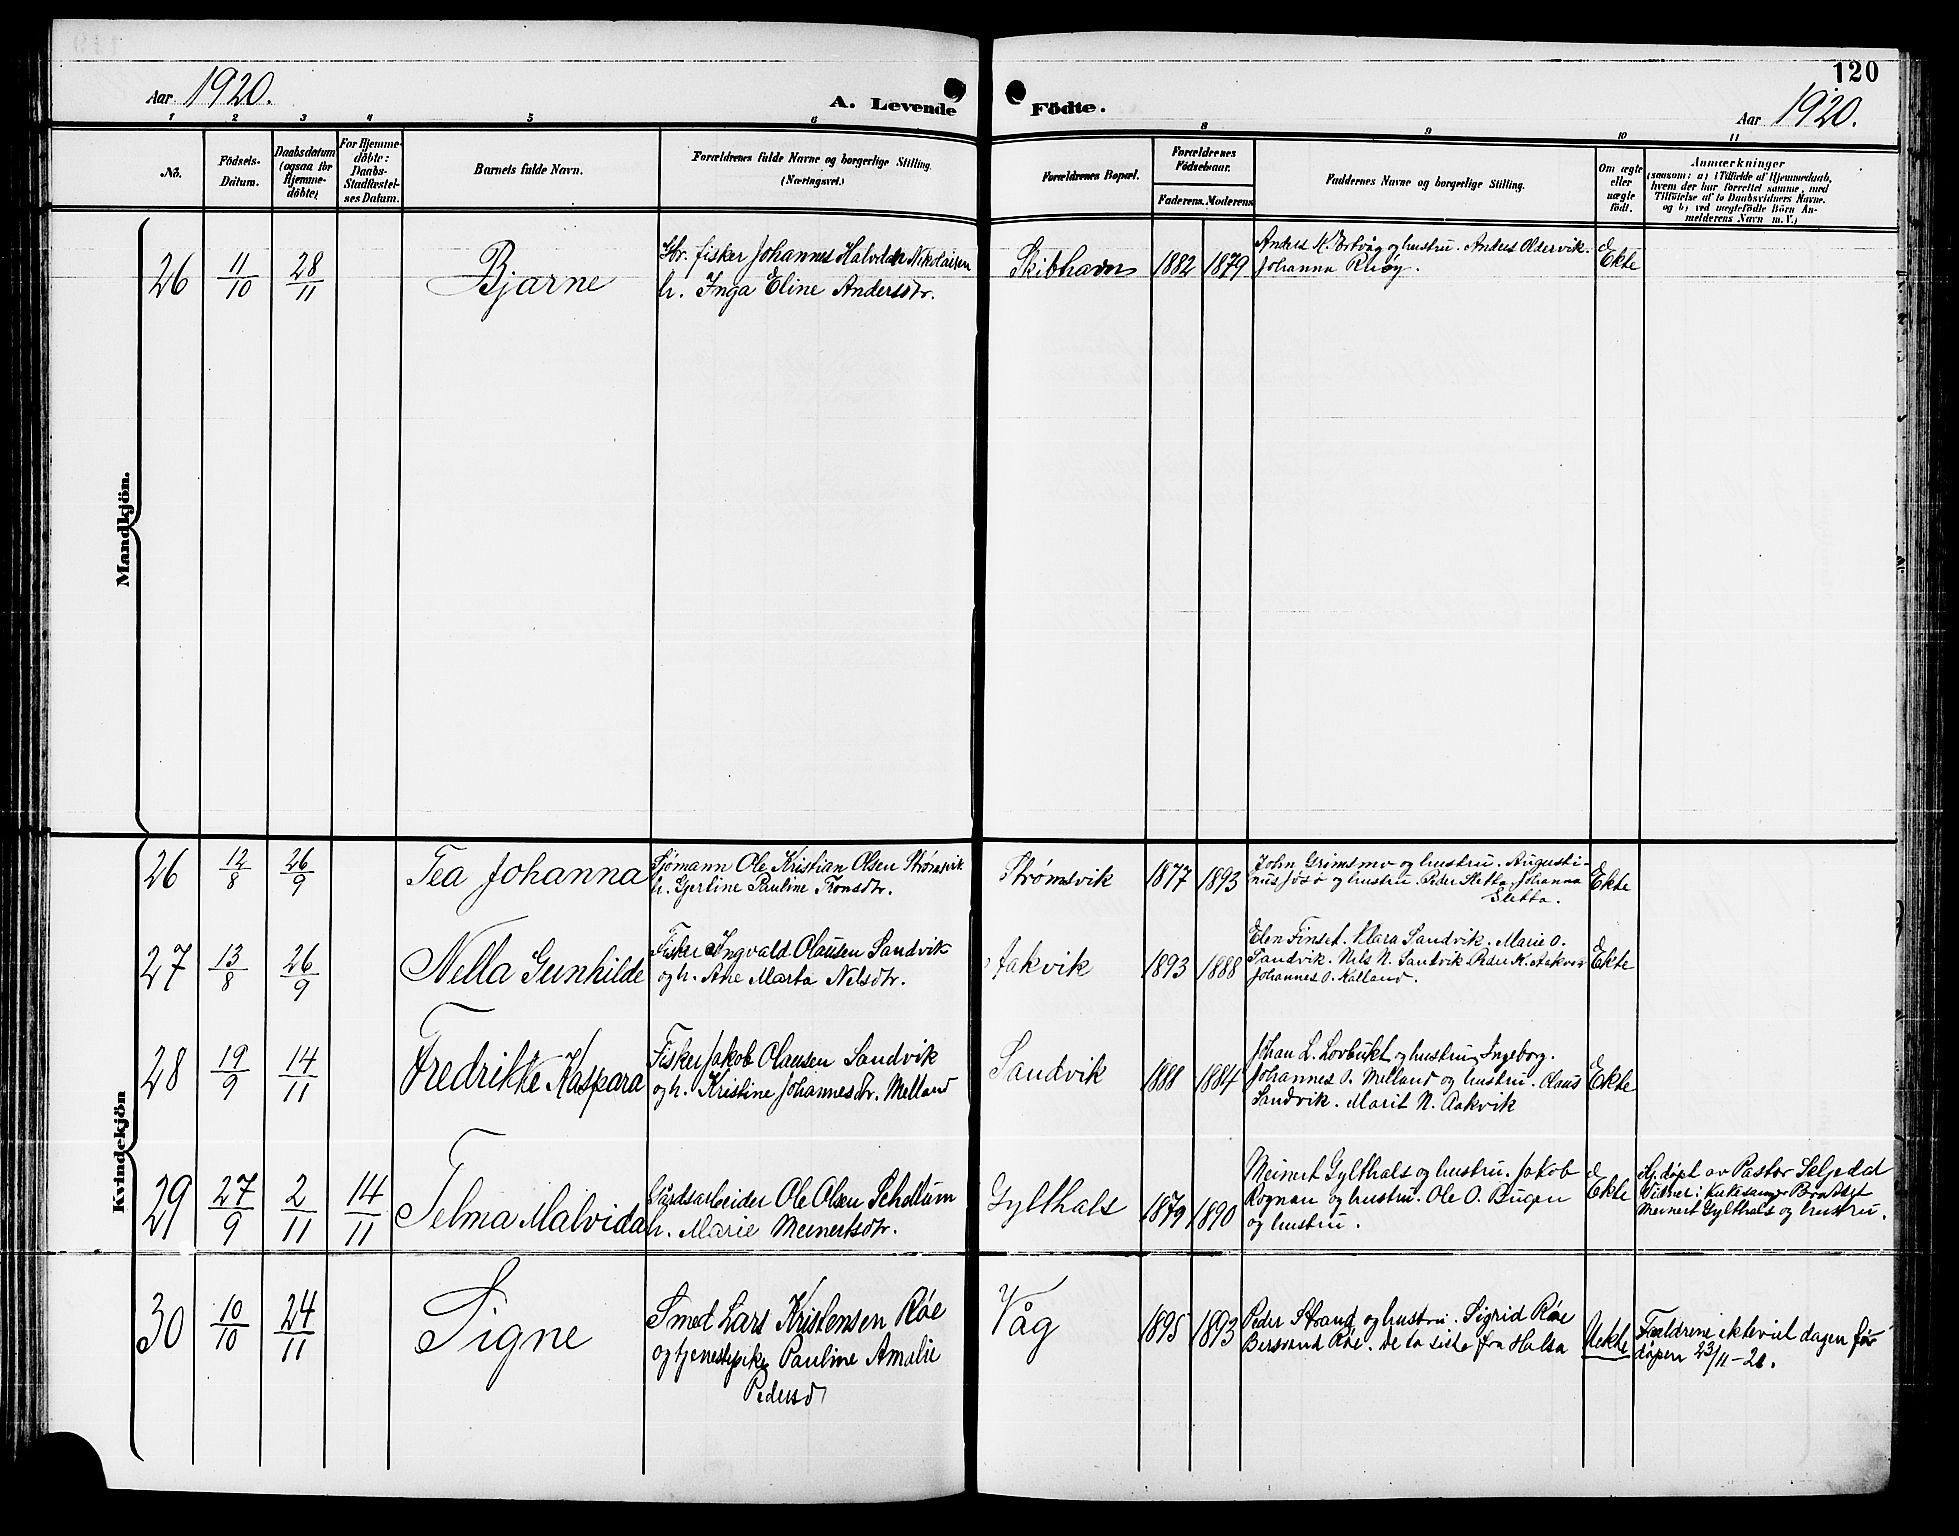 120
Aar 1920.
A. Levende Födte.
Aar 1920.
1 2 3 4 5 6 8 9 10 11
No.
Födsels-Datum.
Daabsdatum (ogsaa for Hjemme-döbte)
For Hjemme-döbte: Daabs-Stadfæstel-ses Datum.
Barnets fulde Navn.
Forældrenes fulde Navne og borgerlige Stilling (Næringsvei.)
Forældrenes Bopæl.
Forældrenes Födselsaar.
Faderens. Moderens
Faddernes Navne og borgerlige Stilling.
Om ægte eller uægte födt.
Anmærkninger
(saasom: a) i Tilfælde af Hjemmedaab,
hvem der har forrettet samme, med
Tilföielse af to Daabsvidners Navne.
og b) ved uægtefödte Börn An-
melderens Navn m. V.)
Mandkjön.
26 11/10 28/11 Bjarne
fisker Johannes Halvdan Nikolaisen
h. Inga Eline Andersdtr.
Skibhavn 1882 1879
Anders M. Ertvåg og hustru. Anders Oldervik.
Johanna
Ekte
Kvindekjön
26 12/8 26/9 Tea Johanna
Sjømann Ole Kristian Olsen Strømsvik
h. Gjertine Pauline Tronsdtr.
Strømsvik 1877 1893
John Grimsmo og hustru. Augusti-
nus Josø og hustru. Peder Sletta. Johanna
Sletta.
Ekte
27 13/8 26/9 Nella Gunhilde
Fisker Ingvald Olausen Sandvik
og h. Ane Marta Nelsdtr.
Aakvik 1893 1888
Elen Finset. Klara Sandvik. Marie O.
Sandvik. Nils N. Sandvik. Peder K. Aakvik
Johannes O. Kalland.
Ekte
28 19/9 14/11 Fredrikke Kaspara
Fisker Jakob Olausen Sandvik
og h. Kristine Johannesdtr. Melland
Sandvik 1888 1884
Johan L. Lovbukt og hustru Ingeborg.
Johannes O. Melland og hustru. Olaus
Sandvik. Marit N. Aakvik
Ekte
29 27/9 2/11 14/11 Telma Malvida
Gårdsarbeider Ole Olsen Schollum
h. Marie Meinertsdtr.
Gylthals 1879 1890
Meinert Gylthals og hustru. Jakob
Rognan og hustru. Ole O. Bugen
og hustru.
Ekte
Hj. døpt av Pastor
Vidner:
Meinert Gylthals og hustru.
30 10/10 24/11 Signe
Smed Lars Kristensen Røe
og tjenestepike Pauline Amalie
Pedersd
Våg 1895 1893
Peder Strand og hustru. Sigrid Røe
Røe. De to siste fra Halsa
Uekte
Forældrene ekteviel dagen før
dåpen 23/11-20.